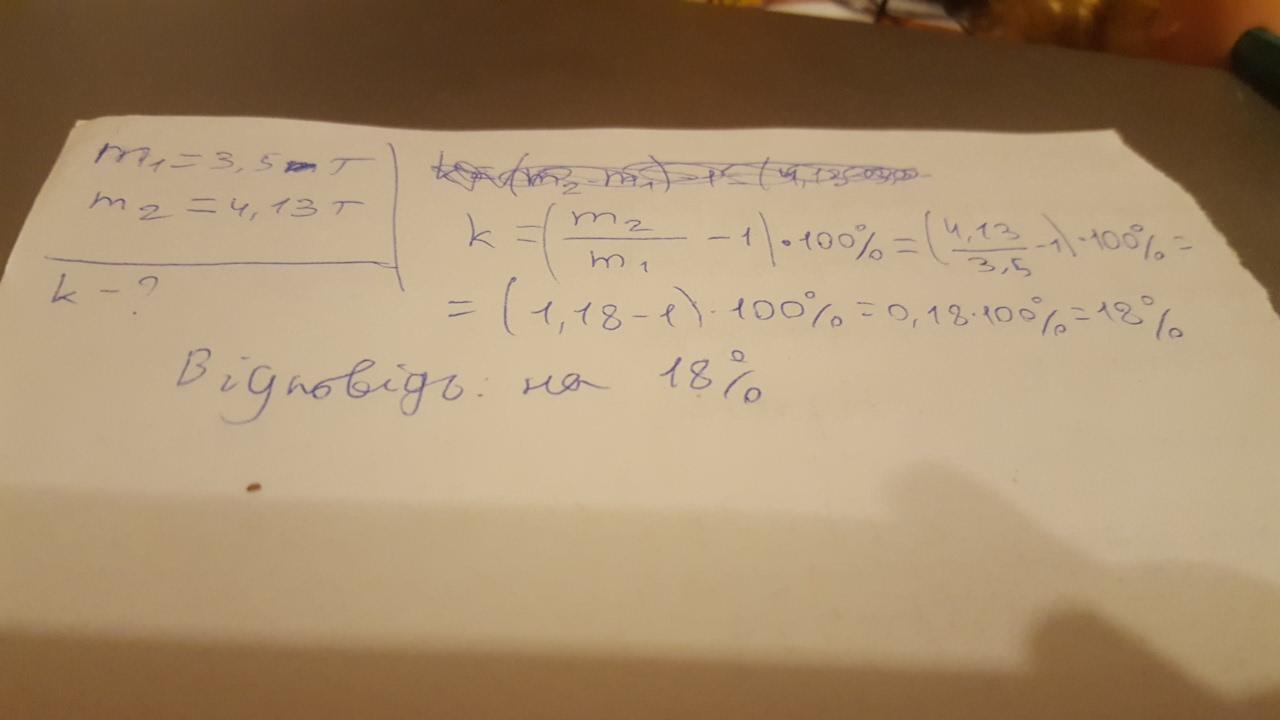 m₁ = 3,5 т
m₂ = 4,13 т
k - ?
(m₂ - m₁)
k = (m₂/m₁ - 1) · 100% = (4,13/3,5 - 1) · 100% =
= (1,18 - 1) · 100% = 0,18 · 100% = 18%
Відповідь: на 18%